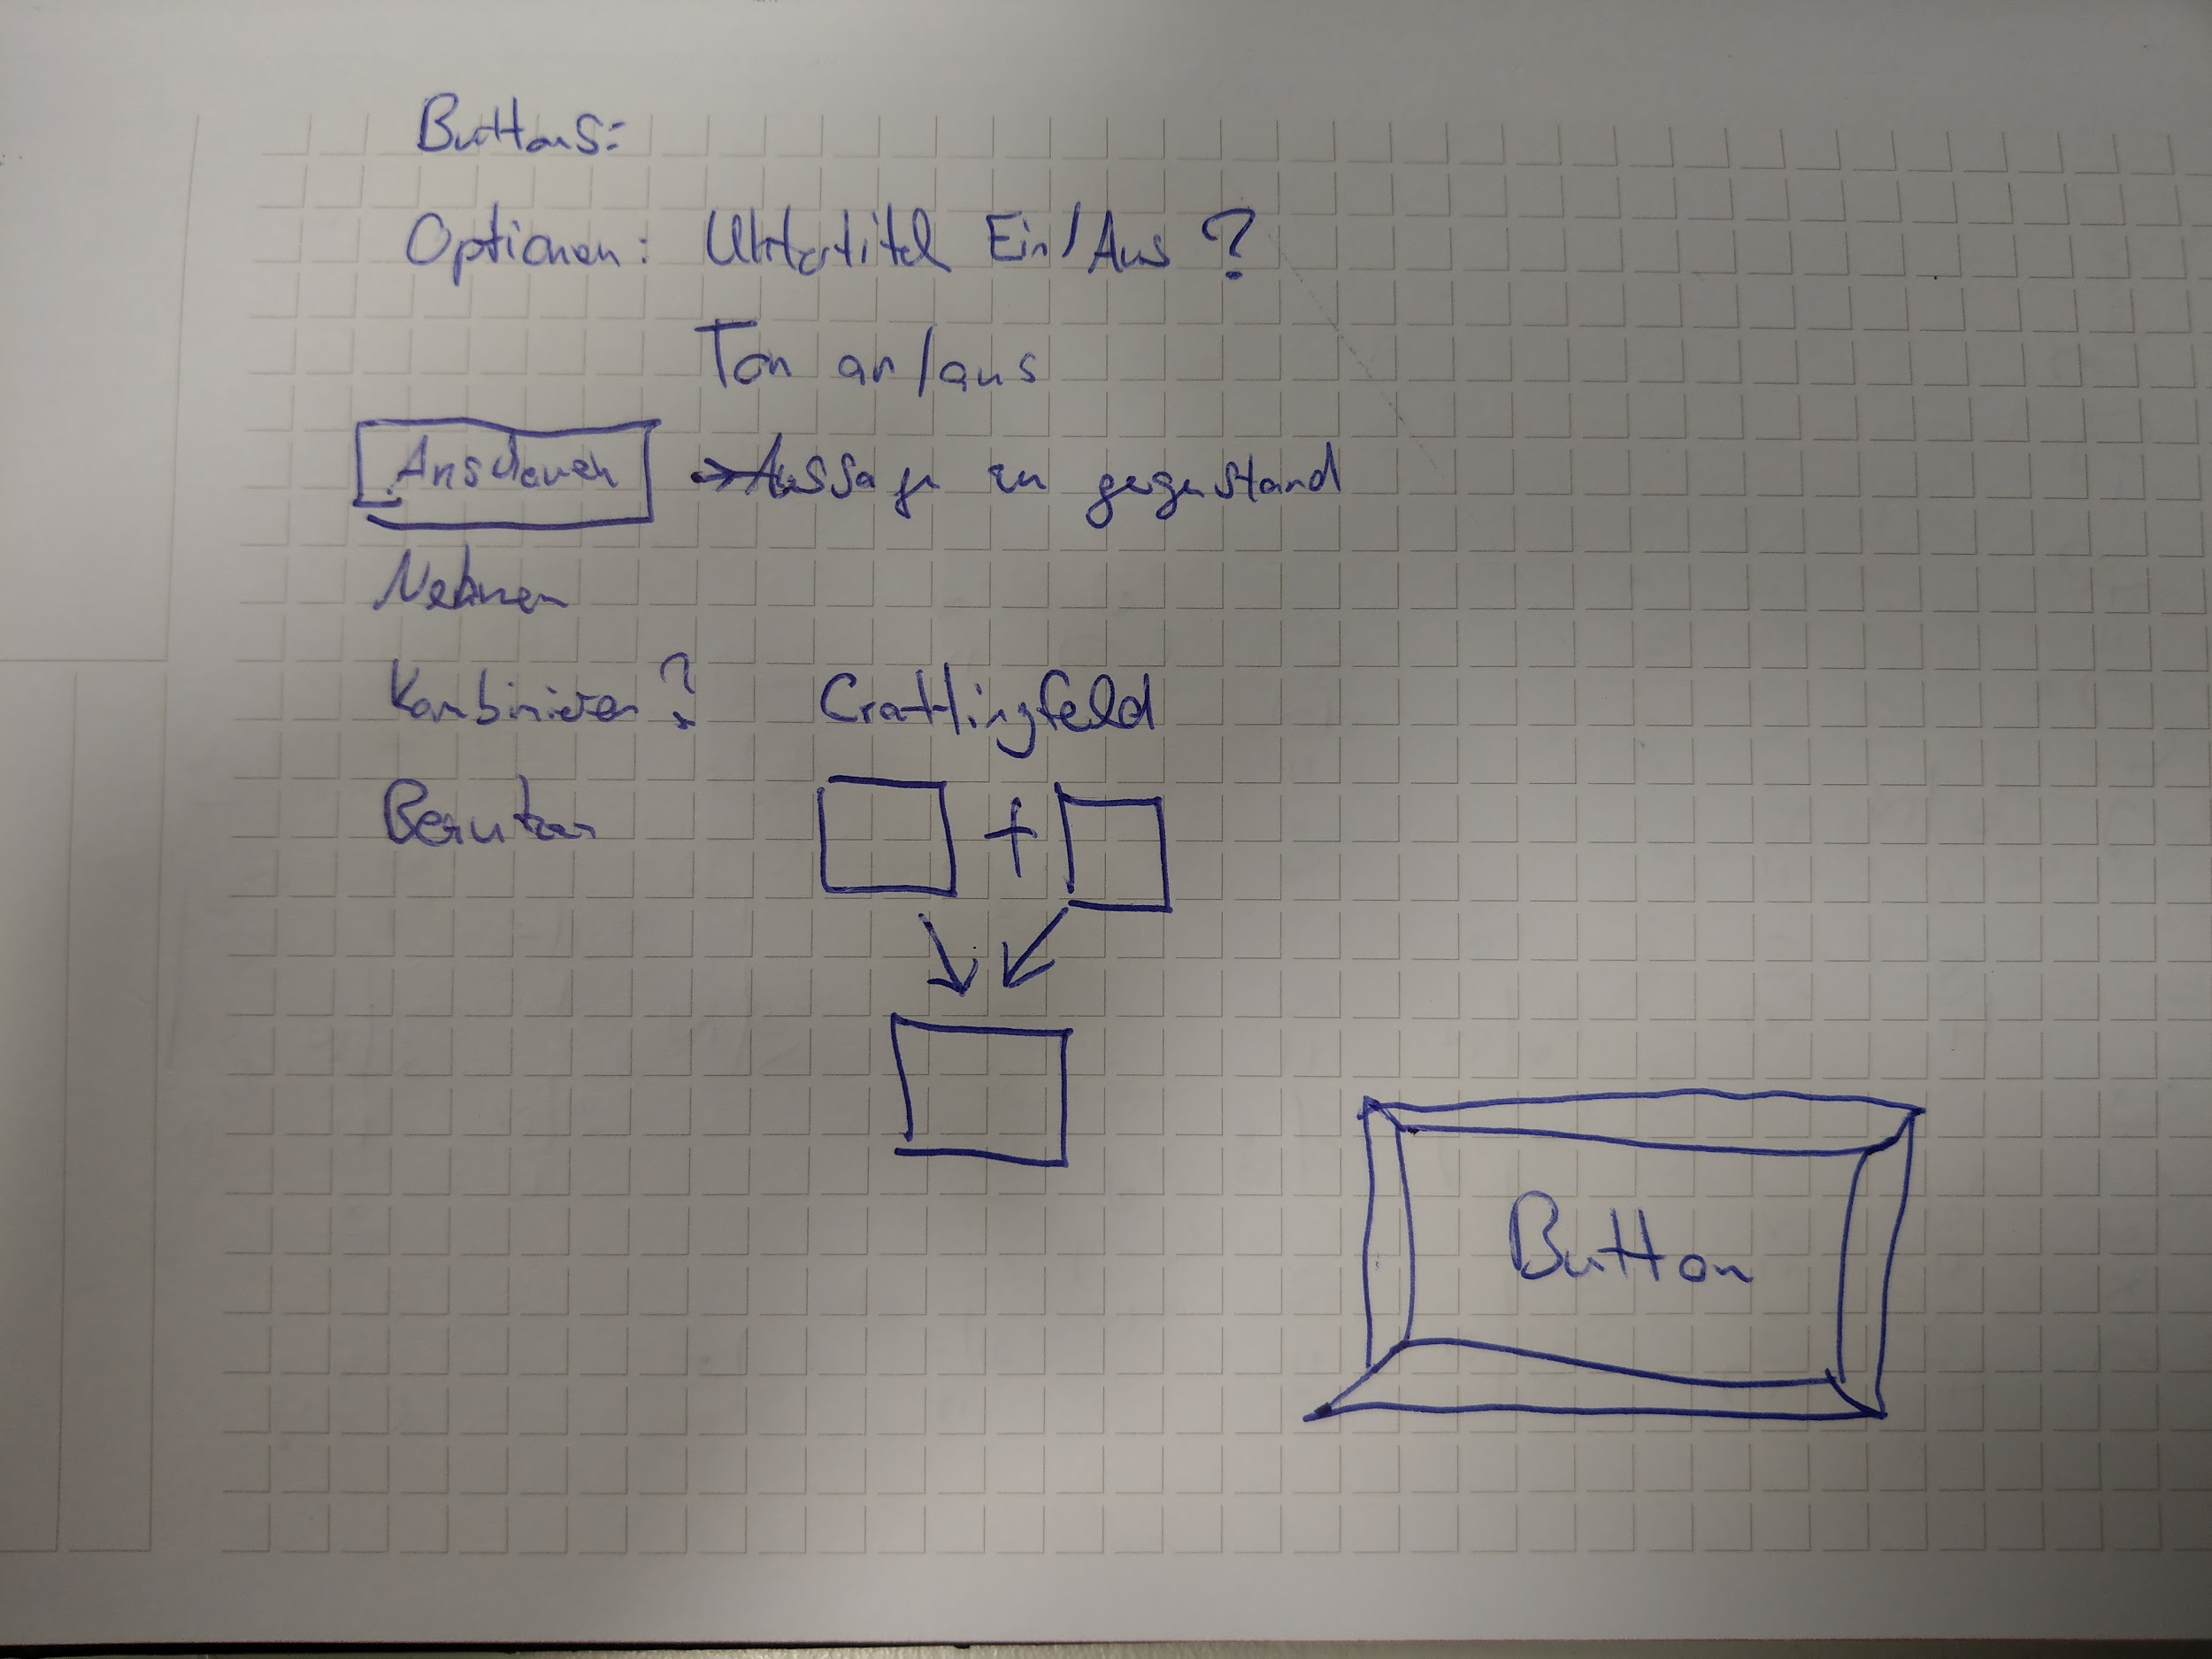 Buttons:
Optionen: Untertitel Ein/Aus ?
Ton an/aus
Anschauen → Aussage zu gegenstand
Nehmen
Kombinieren? Craftingfeld
Benutzen
+
Button